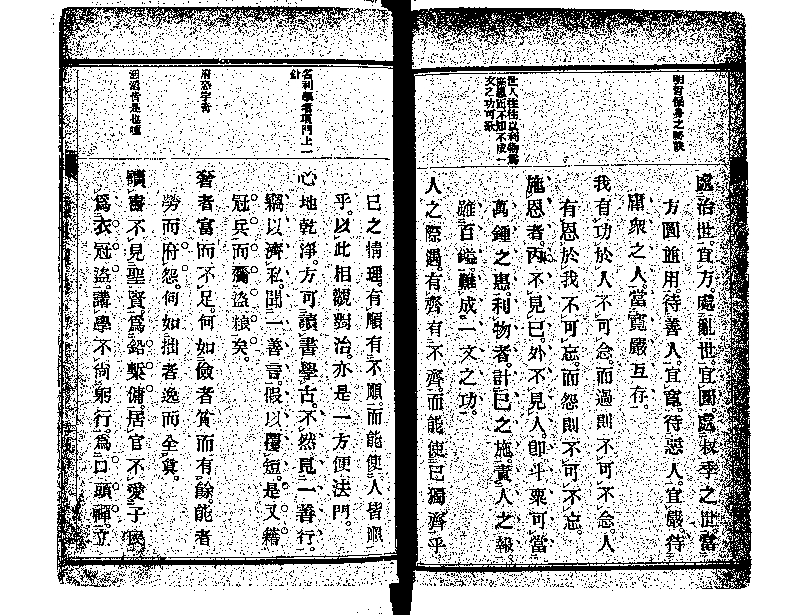 明哲保身之秘訣
世人往往以利物爲
施恩而不知不成一
文之功可歎
處治世。宜方。處亂世。宜圓。處叔季之世。當
方圓並用。待善人。宜寬。待惡人。宜嚴。待
庸衆之人。當寬嚴互存。
我有功於人不可念。而過則不可不念。人
有恩於我不可忘。而怨則不可不忘。
施恩者。內不見己。外不見人。即斗粟可當
萬鍾之惠。利物者。計己之施。責人之報。
雖百鎰。難成一文之功。
人之際遇。有齊有不齊。而能使己獨齊乎
名利學者頂門上一
針
己之情理。有順有不順。而能使人皆順
乎。以此相觀對治。亦是一方便法門。
心地乾淨。方可讀書學古。不然見一善行。
竊以濟私。聞一善言。假以覆短。是又藉
寇兵而齎盜粮矣。
奢者富而不足。何如儉者貧而有餘。能者
勞而府怨。何如拙者逸而全眞。
讀書不見聖賢。爲鉛槧傭。居官不愛子民
爲衣冠盜。講學不尚躬行。爲口頭禪。立